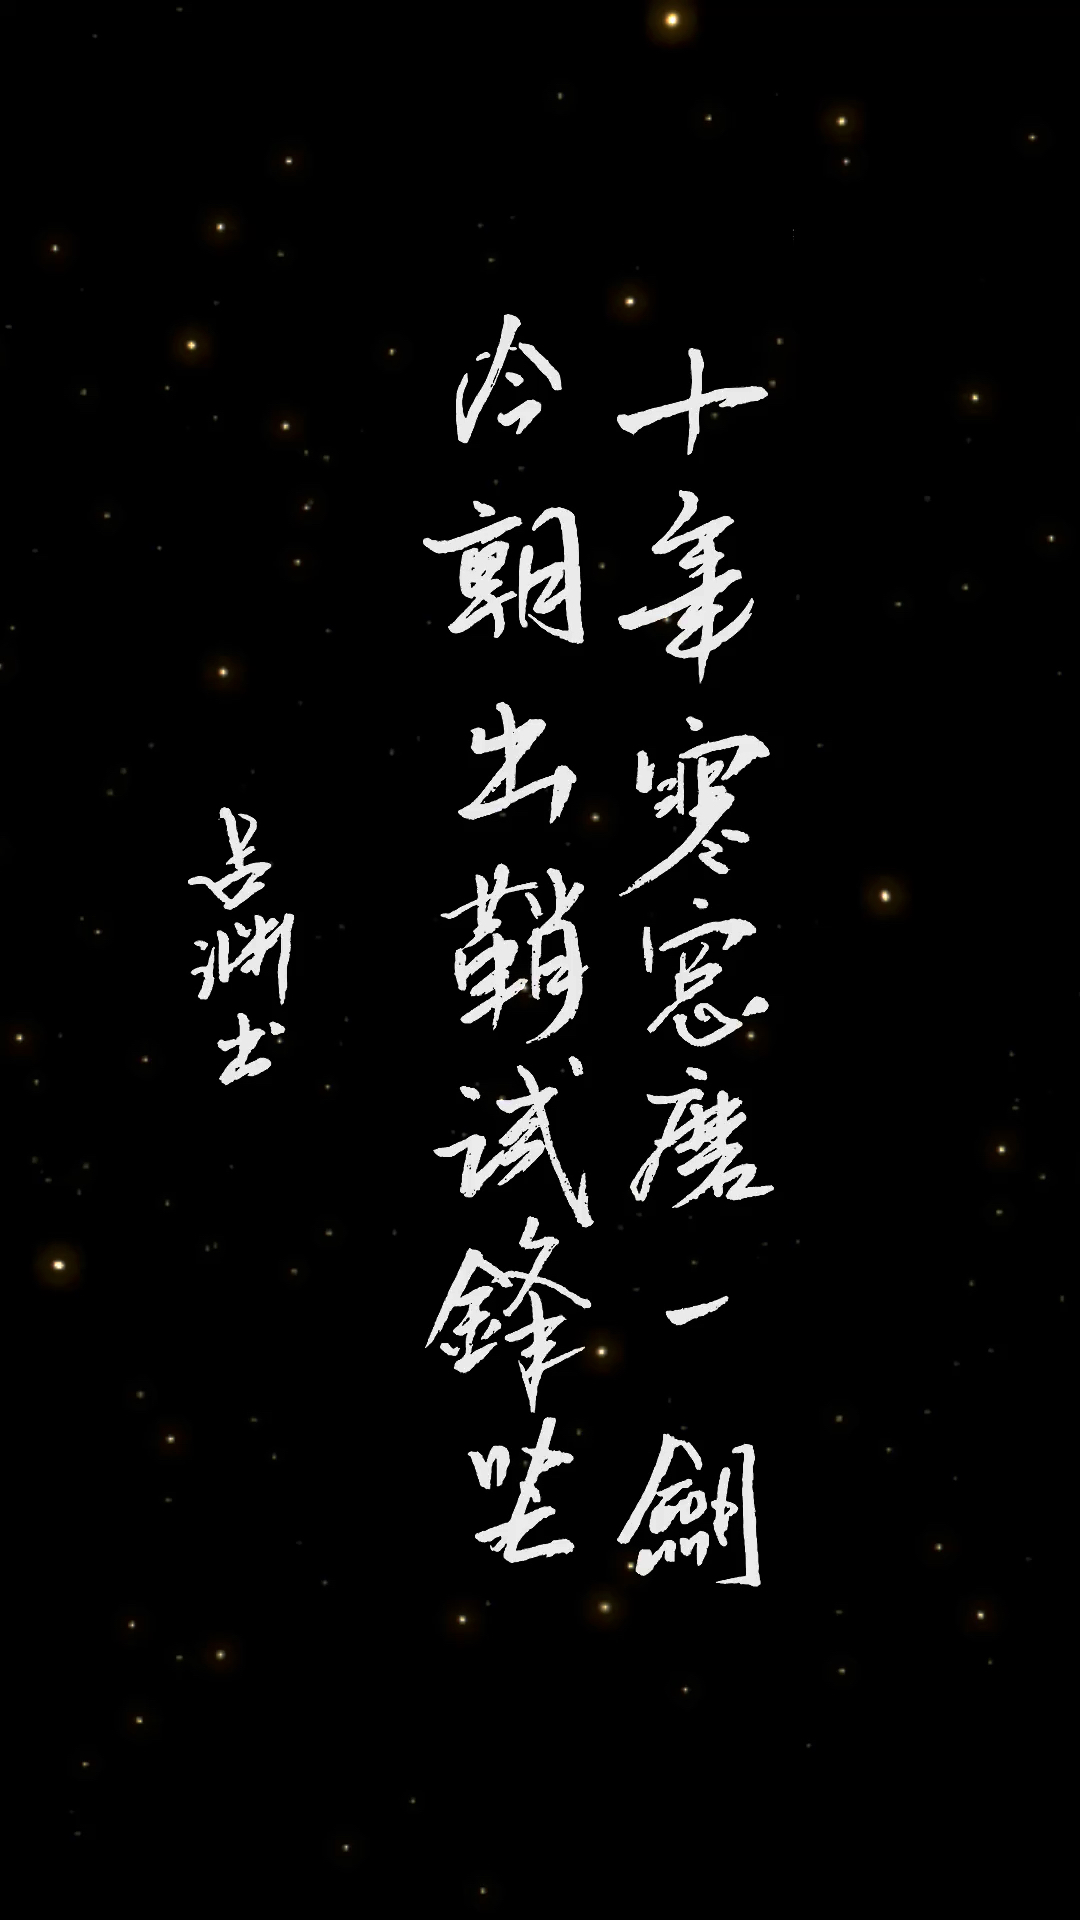 十年寒窓磨一劍
今朝出鞘试鋒芒
渊书